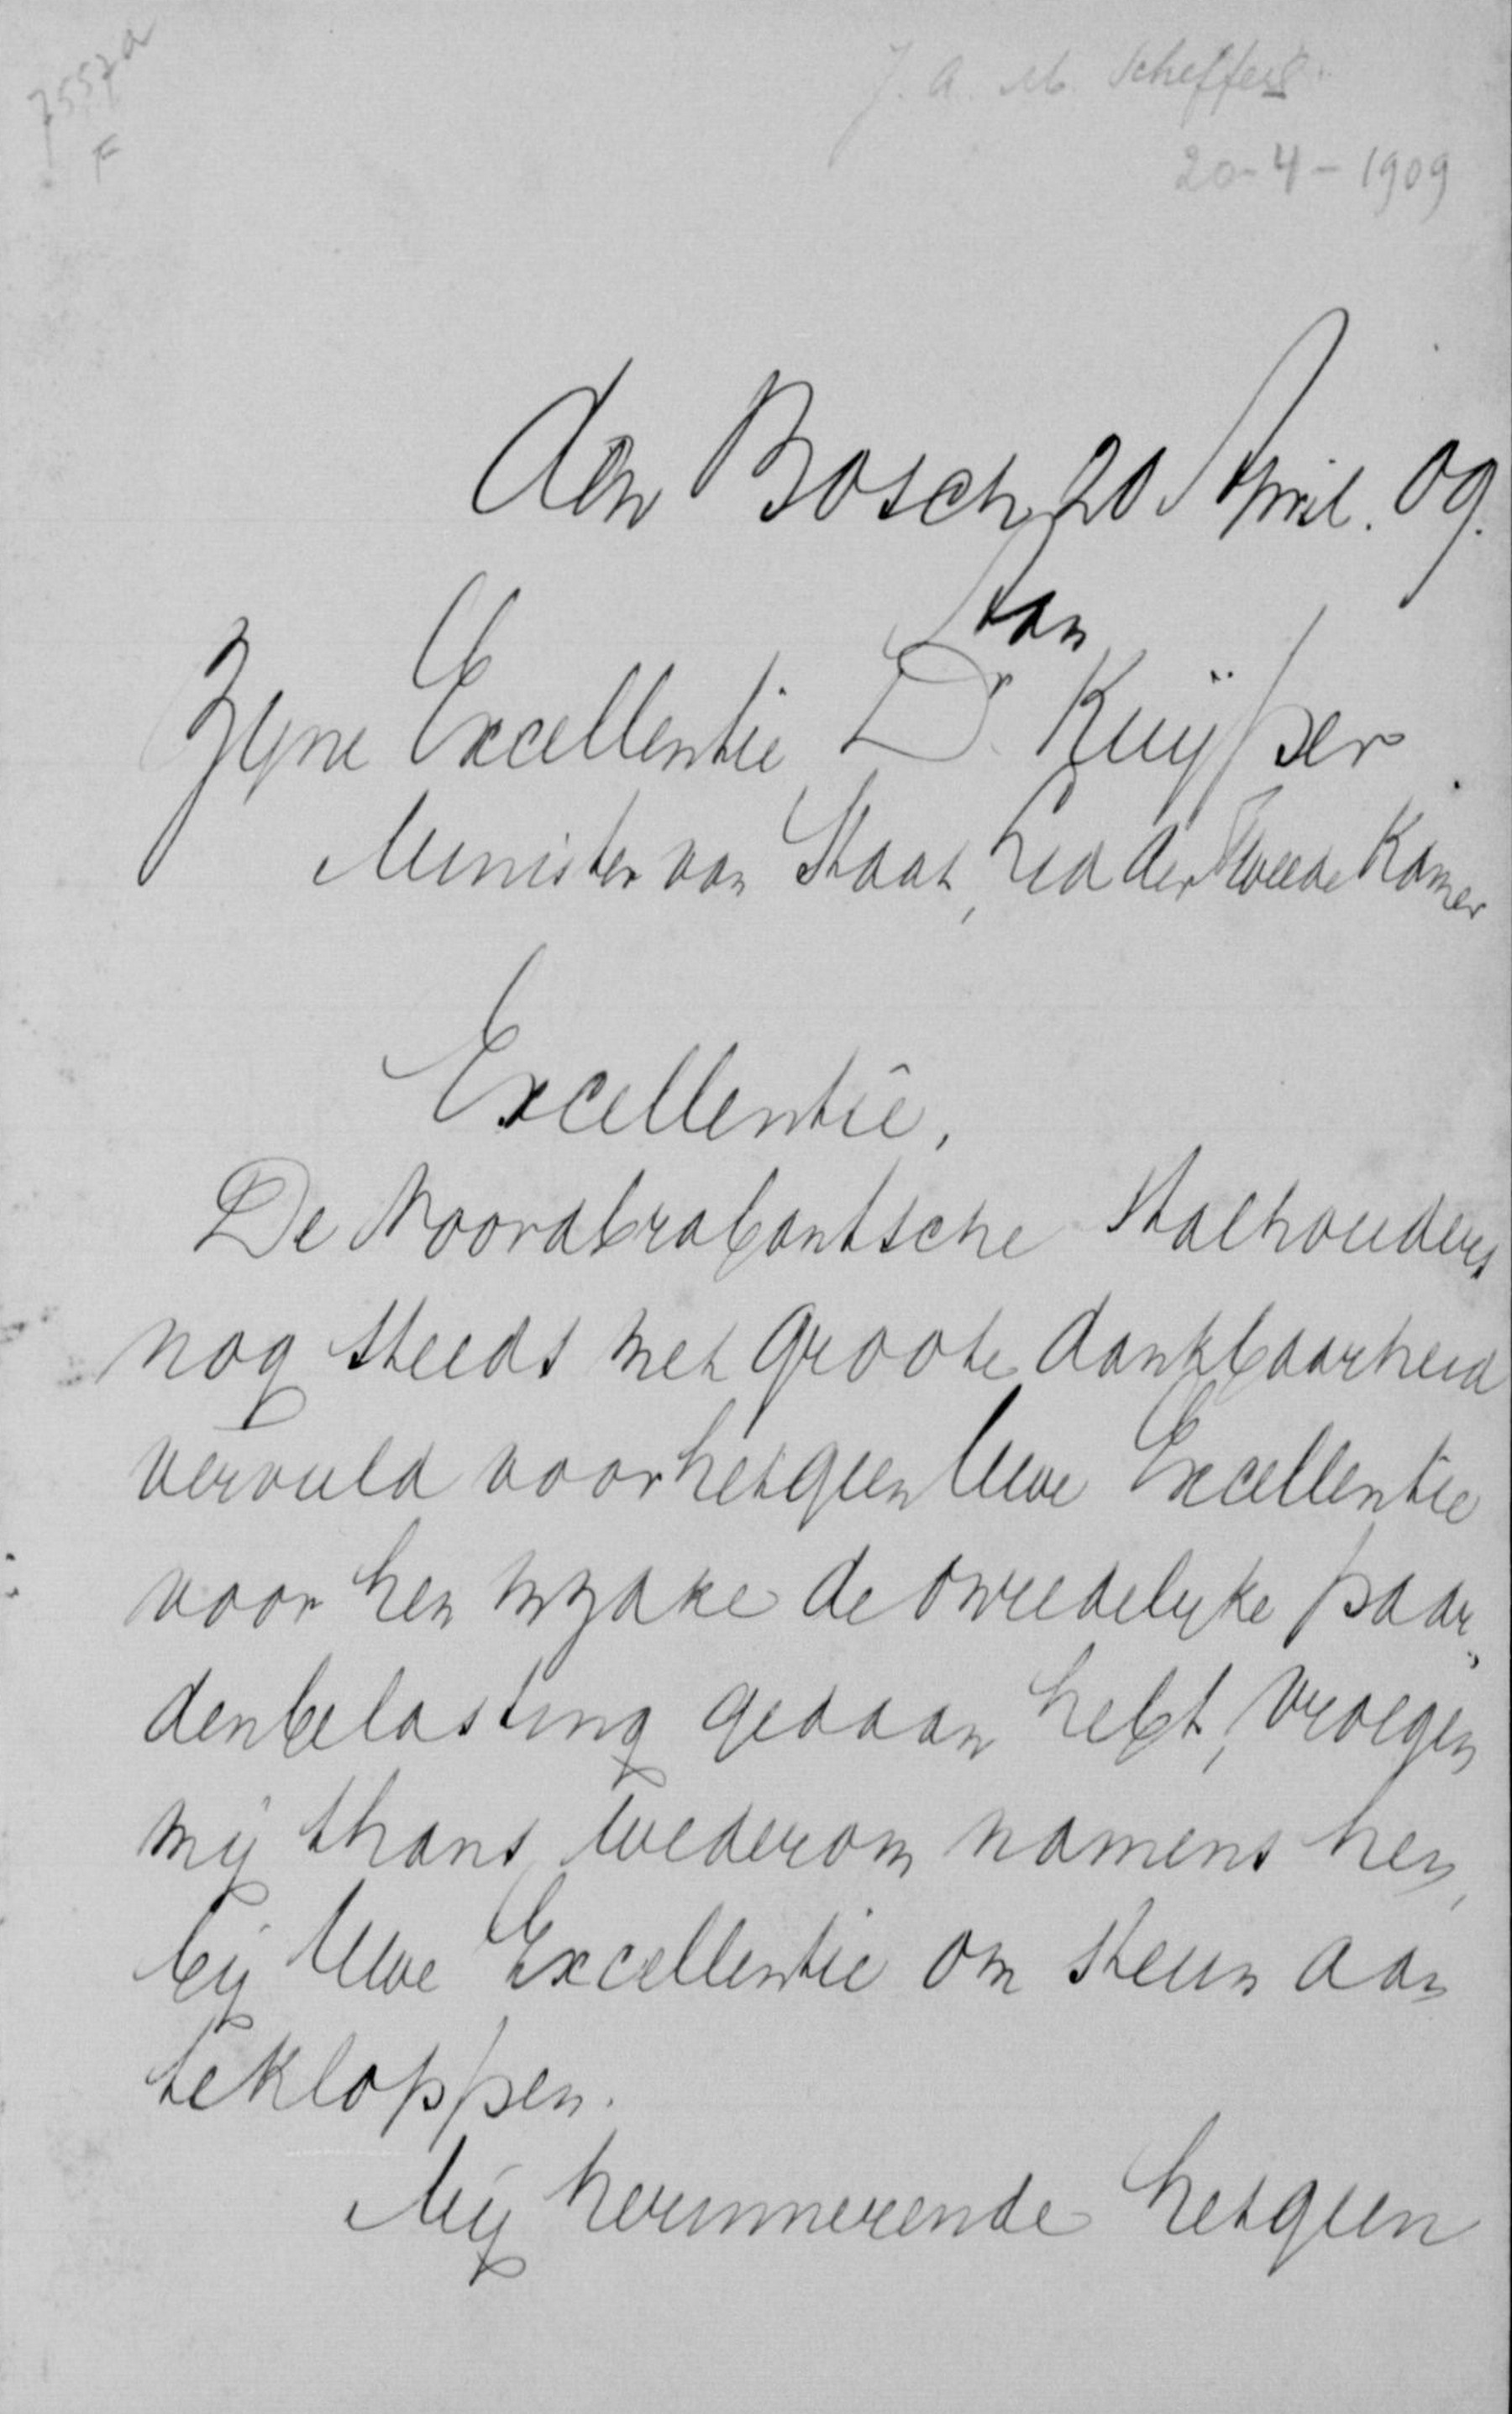 7557a
F
J. A. M. Scheffers.
20-4-1909
den Bosch 20 April. 09.
Aan
Zyne Excellentie Dr. Kuÿper
Minister van Staat, Lid der Tweede Kamer
Excellentie,
De Noordbrabantsche Stalhouders
nog steeds met groote dankbaarheid
vervuld voor hetgeen Uwe Excellentie
voor hen inzake de onredelyke paar„
denbelasting gedaan hebt, vroegen
mij thans wederom namens hen,
bij Uwe Excellentie om steun aan
tekloppen.
Mij herinnerende hetgeen